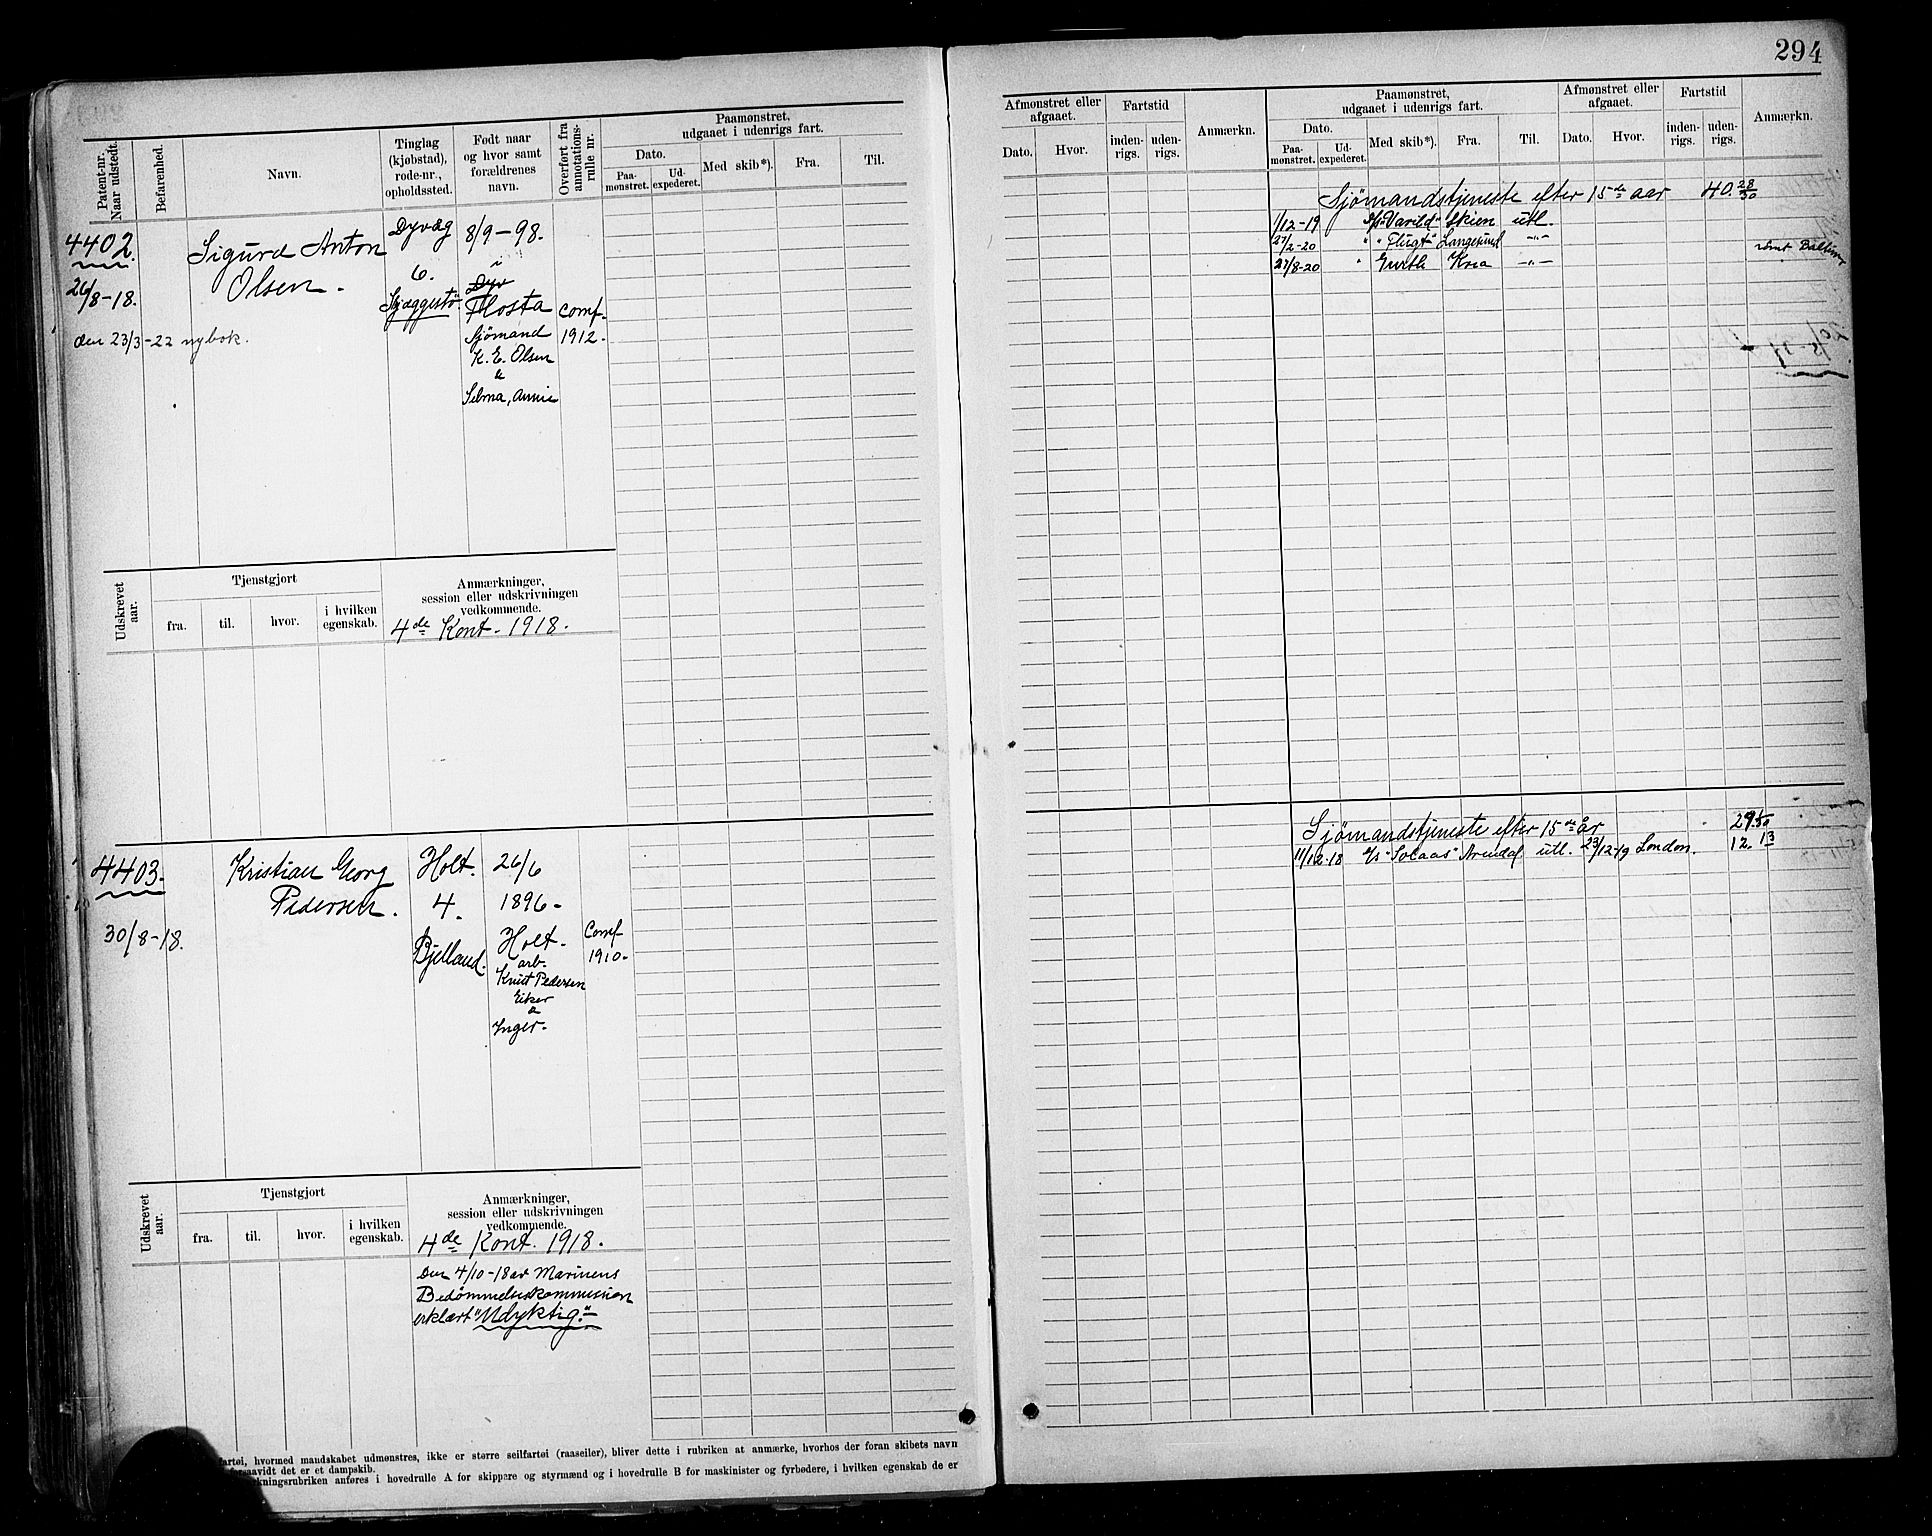 294
Patent-nr. Naar udstedt.
Befarenhed.
Navn.
Tinglag (kjøbstad), rode-nr., opholdssted.
Født naar og hvor samt forældrenes navn.
Overført fra annotations-rulle nr.
Paamønstret, udgaaet i udenrigs fart.
Dato.
Paa-mønstret.
Ud-expederet.
Med skib*).
Fra.
Til.
Afmønstret eller afgaaet.
Dato.
Hvor.
Fartstid
inden-rigs.
uden-rigs.
Anmærkn.
Paamønstret, udgaaet i udenrigs fart.
Dato.
Paa-mønstret.
Ud-expederet.
Med skib*).
Fra.
Til.
Afmønstret eller afgaaet.
Dato.
Hvor.
Fartstid
inden-rigs.
uden-rigs.
Anmærkn.
4402
26/8-18.
den 23/3-22 ny bok.
Sigurd Anton
Olsen.
Dyvæg
6.
8/9-98.
i
Dyv
Flosta
Sjømand
K. E. Olsen
&
Selma, Annie
Comf.
1912.
Sjømandstjeneste efter 15de aar 40. 28/30
1/12-19 "Varild" Skien utl.
27/2-20 " " "Flugt" Langesund -"-
27/8-20 " Gurth Kra -"-
Udskrevet aar.
Tjenstgjort
fra.
til.
hvor.
i hvilken egenskab.
Anmærkninger,
session eller udskrivningen
vedkommende.
4de Kont. 1918.
4403.
30/8-18.
Kristian Georg
Pedersen.
Holt.
4.
Bjelland.
26/6
1896-
Holt-
arb.
Knut Pedersen
Eiker
&
Inger-
Comf
1910-
Sjømandstjeneste efter 15de år
11/12-18 "Solaas" Arendal utl. 23/12-19 London. 12. 13
Udskrevet aar.
Tjenstgjort
fra.
til.
hvor.
i hvilken egenskab.
Anmærkninger,
session eller udskrivningen
vedkommende.
4de Kont. 1918.
Den 4/10-18 av Marinens
Bedømmelseskommission
erklært "Udyktig."
hvormed mandskabet udmønstres, ikke er større seilfartøi (raaseiler), bliver dette i rubriken at anmærke, hvorhos der foran skibets navn
forsaavidt det er et dampskib.
anføres i hovedrulle A for skippere og styrmænd og i hovedrulle B for maskinister og fyrbødere, i hvilken egenskab de er